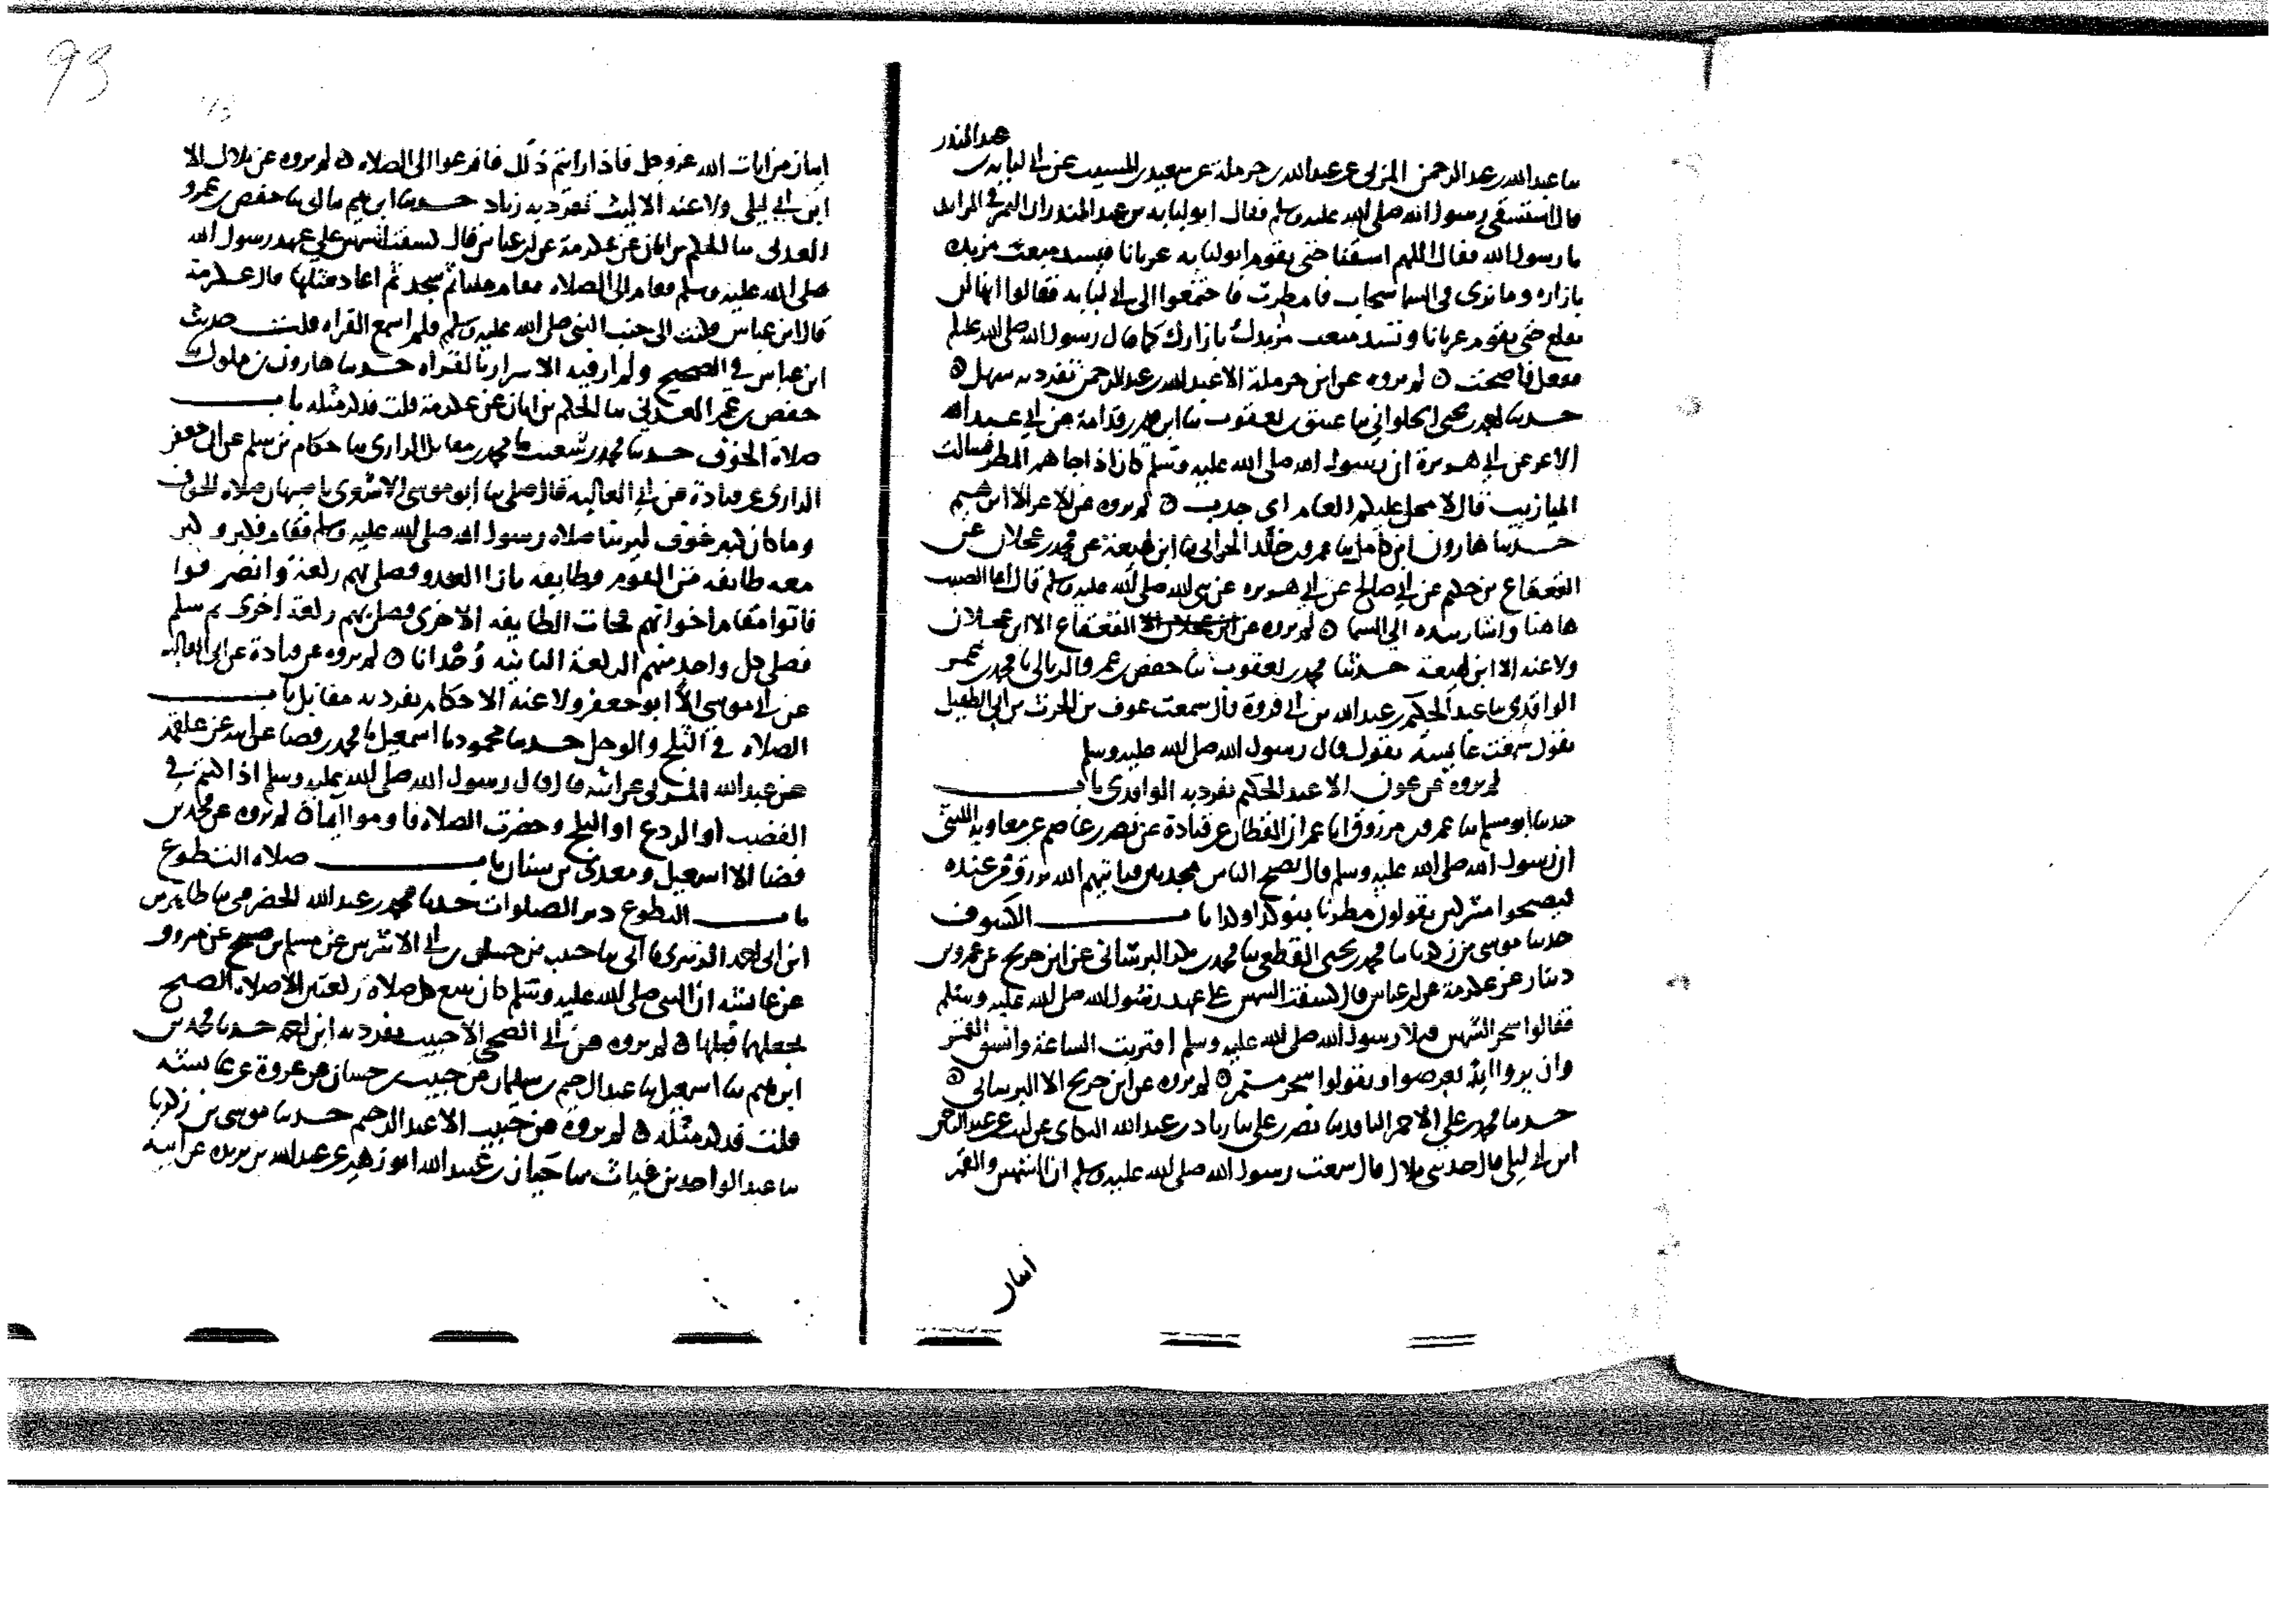 عبد المنذر
ثنا عبد الله بن عبد الرحمن المزني عن عبد الله بن حرملة عن سعيد بن المسيب عن ابي لبابة بن
قال استسقى رسول الله صلى الله عليه وسلم فقال ابو لبابة بن عبد المنذر ان التمر في المرابد
يا رسول الله فقال اللهم اسقنا حتى يقوم ابو لبابه عريانا فيسد مبعث مربده
بازاره وما نرى في السما سحاب فامطرت فاجتمعوا الى ابي لبابه فقالوا انها لن
تقلع حتى تقوم عريانا وتسد مبعث مربدك بازارك كما قال رسول الله صلى الله عليه وسلم
ففعل فاصحت ه لم يروه عن ابن حرملة الا عبد الله بن عبد الرحمن تفرد به سهل ه
حدثنا احمد بن يحيى الحلواني ثنا عتيق بن يعقوب ثنا ابراهيم بن قدامة عن ابي عبد الله
الاغر عن ابي هريرة ان رسول الله صلى الله عليه وسلم كان اذا جاهم المطر فسالت
الميازيب قال لا محل عليكم العام اي جدب ه لم يروه عن الاغر الا ابرهيم
حدثنا هارون بن كامل ثنا عمرو بن خالد الحراني ثنا ابن لهيعة عن محمد بن عجلان عن
القعقاع بن حكيم عن ابي صالح عن ابي هريره عن نبي الله صلى الله عليه وسلم قال انما الصيب
هاهنا واشار بيده الى السما ه لم يروه عن ابن عجلان الا القعقاع الا ابن عجلان
ولا عنه الا ابن لهيعة حدثنا محمد بن يعقوب ثنا حفص بن عمرو الربالي ثنا محمد بن عمر
الواقدي ثنا عبد الحكيم بن عبد الله بن ابي فروة قال سمعت عوف بن الحرث بن ابي الطفيل
يقول سمعت عايشة تقول قال رسول الله صلى الله عليه وسلم
لم يروه عن عوف الا عبد الحكيم تفرد به الواقدي باب
حدثنا ابو مسلم ثنا عمرو بن مرزوق انا عمران القطان عن قتادة عن نصر بن عاصم عن معاويه الليثي
ان رسول الله صلى الله عليه وسلم قال يصبح الناس مجدبين فياتيهم الله برزق من عنده
فيصبحوا مشركين يقولون مطرنا بنو كذا وكذا باب الكسوف
حدثنا موسى بن زكريا ثنا محمد بن يحيى القطعي ثنا محمد بن بكر البرساني عن ابن جريج عن عمرو بن
دينار عن عكرمة عن ابن عباس قال كسفت الشمس على عهد رسول الله صلى الله عليه وسلم
فقالوا سحر الشمس فتلا رسول الله صلى الله عليه وسلم اقتربت الساعة وانشق القمر
وان يروا اية يعرضوا ويقولوا سحر مستمر ه لم يروه عن ابن جريج الا البرساني ه
حدثنا محمد بن علي الاحمر الناقد ثنا نصر بن علي ثنا زياد بن عبد الله البكاى عن ليث عن عبد الرحمن
ابن ابي ليلى قال حدثني بلال قال سمعت رسول الله صلى الله عليه وسلم ان الشمس والقمر
ايتان من ايات الله عز وجل فاذا رايتم ذلك فافزعوا الى الصلاه ه لم يروه عن بلال الا
ابن ابي ليلى ولا عنه الا ليث تفرد به زياد حدثنا ابرهيم ثنا ابي ثنا حفص بن عمرو
العدني ثنا الحكم بن ابان عن عكرمة عن ابن عباس قال كسفت الشمس على عهد رسول الله
صلى الله عليه وسلم فقام الى الصلاه فقام مليا ثم سجد ثم اعاد مثلها قال عكرمة
قال ابن عباس قمت الى جنب النبي صلى الله عليه وسلم فلم اسمع القراه قلت حديث
ابن عباس في الصحيح ولم ار فيه الاسرار بالقراه حدثنا هارون بن ملوك
حفص بن عمر العدني ثنا الحكم بن ابان عن عكرمة قلت فذكر مثله باب
صلاة الخوف حدثنا محمد بن شعيب ثنا محمد بن مقاتل الرازي ثنا حكام بن سلم عن ابي جعفر
الرازي عن قتادة عن ابي العاليه قال صلى بنا ابو موسى الاشعري باصبهان صلاه الخوف
وما كان كبير خوف ليرينا صلاه رسول الله صلى الله عليه وسلم فقام فكبر وكبر
معه طايفه من القوم وطايفه بازا العدو فصلى بهم ركعة وانصرفوا
فاتوا مقام اخوانهم فجات الطايفه الاخرى فصلى بهم ركعة اخرى ثم سلم
فصلى كل واحد منهم الركعة الثانيه وحدانا ه لم يروه عن قتادة عن ابي العالية
عن ابي موسى الا ابو جعفر ولا عنه الا حكام تفرد به مقاتل باب
الصلاه في الثلج والوحل حدثنا محمود ثنا اسمعيل ثنا محمد بن فضا عن ابيه عن علقمه
عن عبد الله المزني عن ابيه قال قال رسول الله صلى الله عليه وسلم اذا كنتم في
القصب او الردع او الثلج وحضرت الصلاه فاوموا ايماة ه لم يروه عن محمد بن
فضا الا اسمعيل ومعدي بن سنان باب صلاه التطوع
باب التطوع دبر الصلوات حدثنا محمد بن عبد الله الحضرمي ثنا طاهر بن
ابن ابي احمد الزبيري ثنا ابي ثنا حبيب بن حسان بن ابي الاشرس عن مسلم بن صبيح عن مسروق
عن عائشه ان النبي صلى الله عليه وسلم كان يتبع كل صلاة ركعتين الا صلاه الصبح
يجعلها قبلها ه لم يروه عن ابي الضحى الا حبيب تفرد به ابن احمد حدثنا محمد بن
ابرهيم ثنا اسمعيل ثنا عبد الرحيم بن سليمان عن حبيب بن حسان عن عروة عن عايشه
قلت فذكر مثله ه لم يروه عن حبيب الا عبد الرحيم حدثنا موسى بن زكريا
ثنا عبد الواحد بن غياث ثنا حيان بن عبيد الله ابو زهير عن عبد الله بن بريده عن ابيه